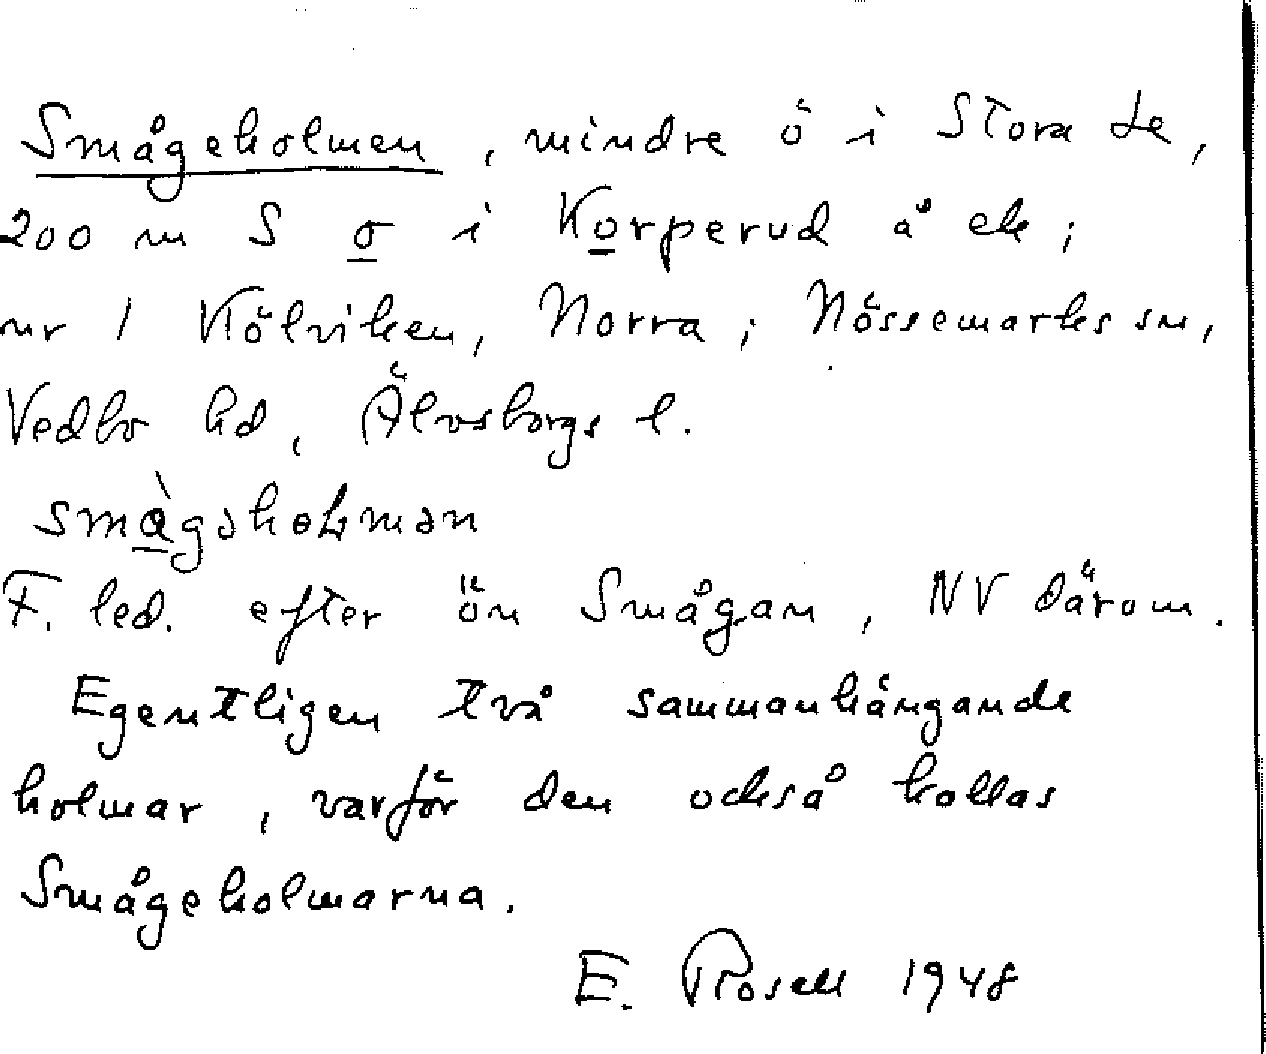 Smågeholmen, mindre ö i Stora Le,
200 m S o i Korperud å ek;
nr 1 Kölviken, Norra; Nössemarks sn,
Vedbo hd, Älvsborgs l.
F. led. efter ön Smågan, NV därom.
Egentligen två sammanhängande
holmar, varför den också kallas
Smågeholmarna.
E. Rosell 1948